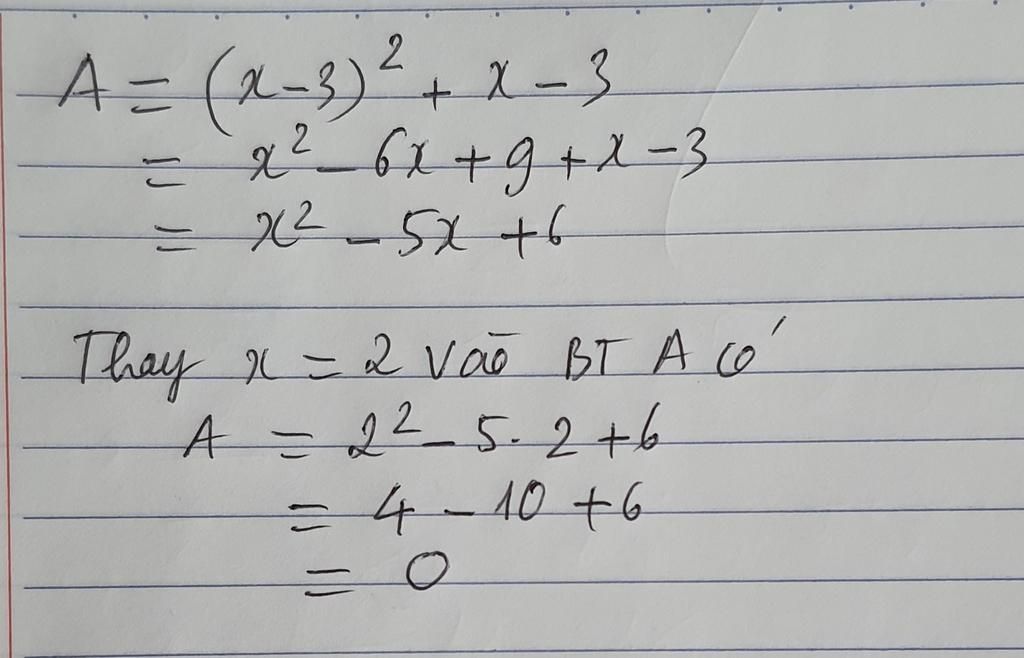 A = (x-3)² + x - 3
= x² - 6x + 9 + x - 3
= x² - 5x + 6
Thay x = 2 vào BT A có
A = 2² - 5. 2 + 6
= 4 - 10 + 6
= 0